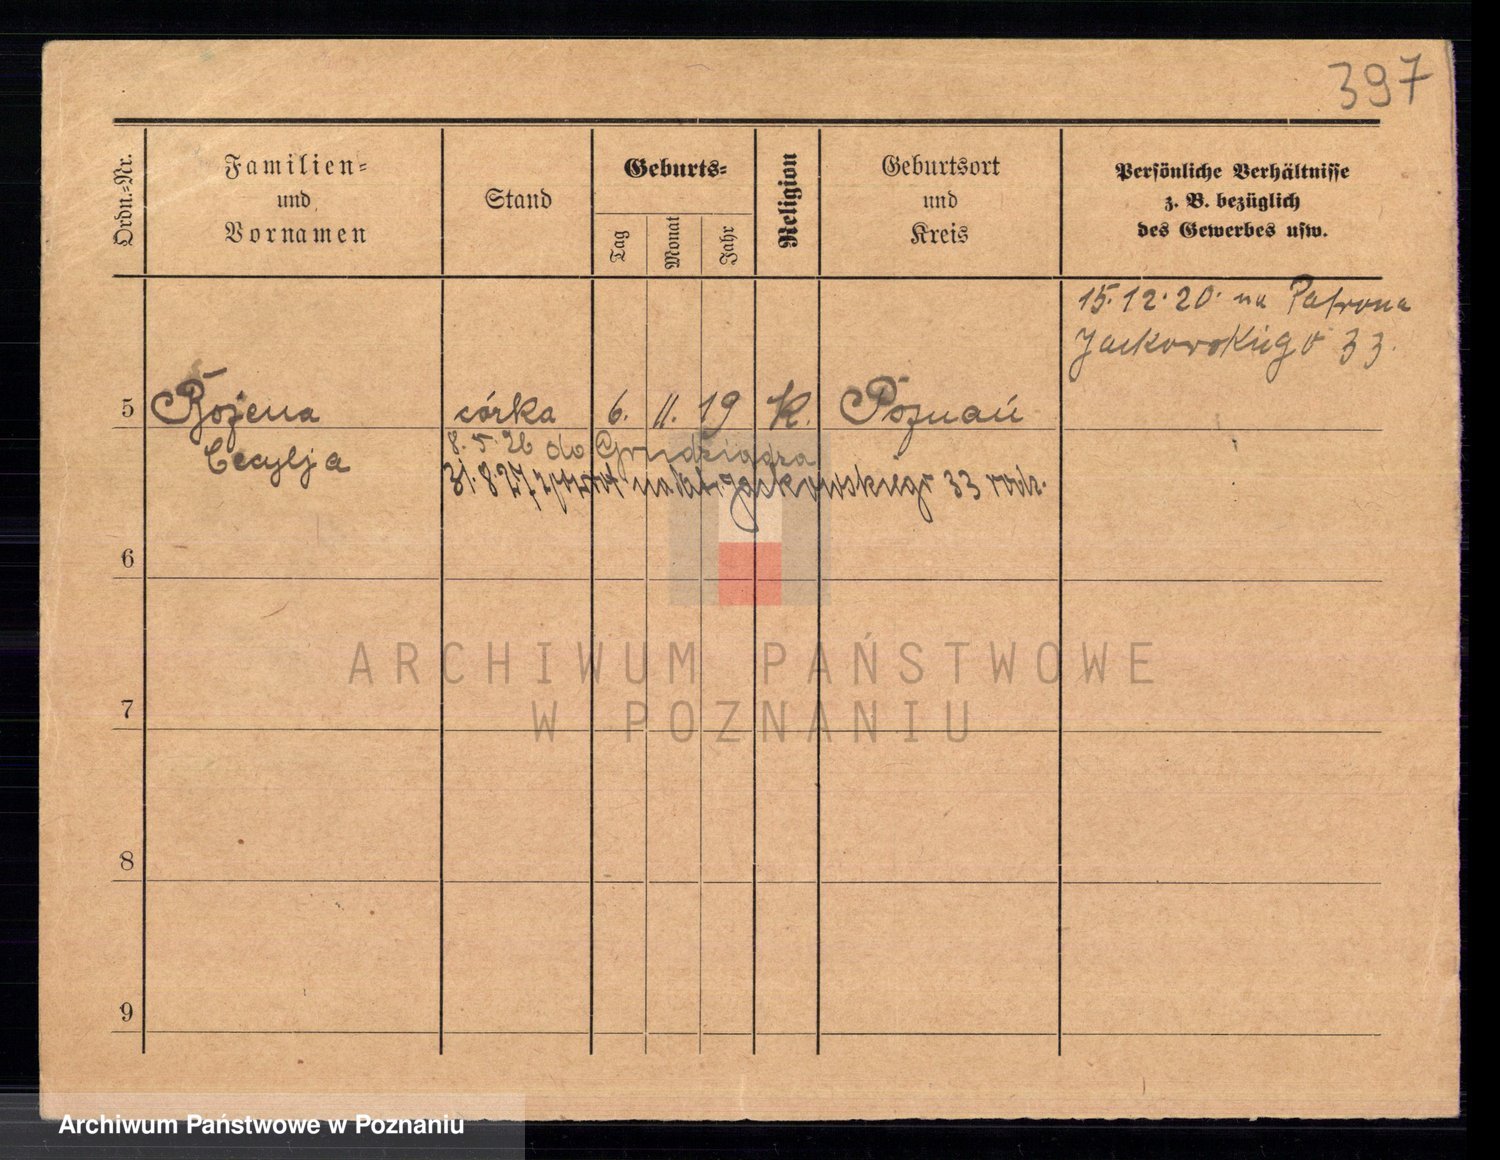 397
Ordn.-Nr.
Familien-
und
Vornamen
Stand
Geburts-
Tag
Monat
Jahr
Religion
Geburtsort
und
Kreis
Persönliche Verhältnisse
z. B. bezüglich
des Gewerbes usw.
15.12.20. na Patrona
Jackowskiego 33.
5 Bożena córka 6. 11. 19 K. Poznań
Cecylja
8. 5. 26 do Grudziądza
31.8.27 Jackowskiego 33 rodz.
6
7
8
9
ARCHIWUM PAŃSTWOWE
W POZNANIU
Archiwum Państwowe w Poznaniu